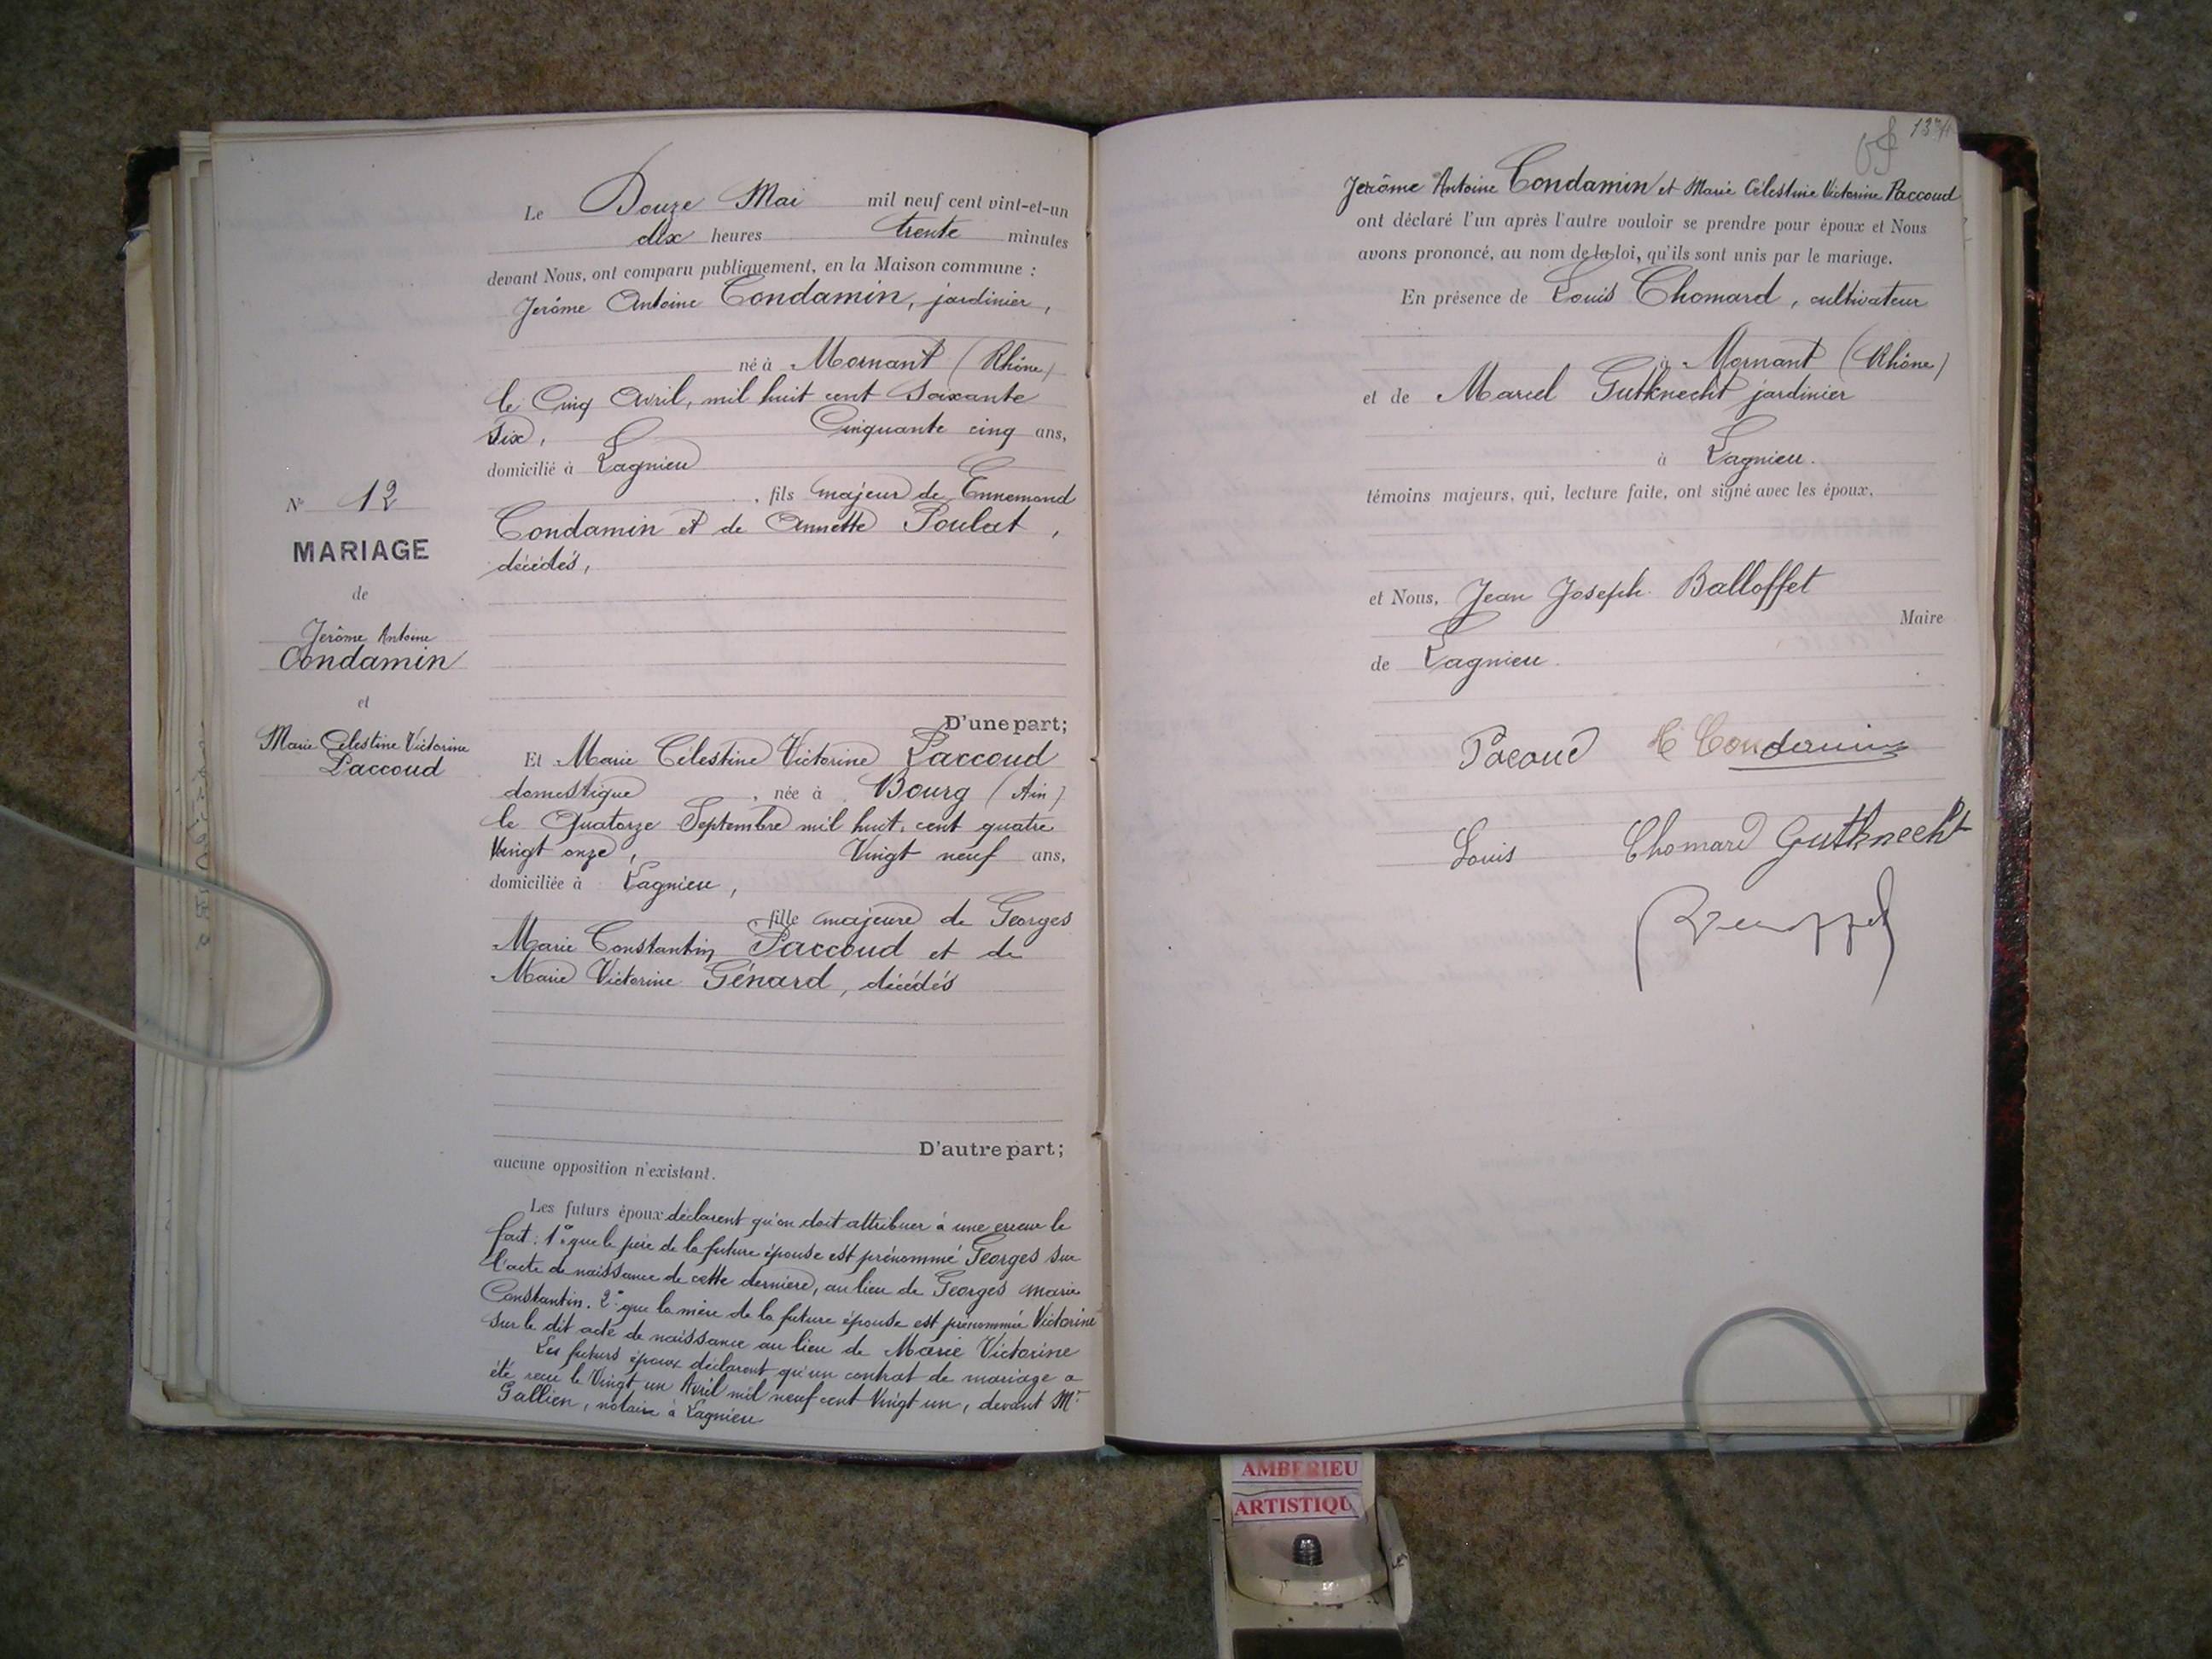 Le Douze Mai mil neuf cent vint-et-un
dix heures trente minutes
devant Nous, ont comparu publiquement, en la Maison commune :
Jerôme Antoine Condamin, jardinier,
né à Mornant (Rhône)
le Cinq Avril, mil huit cent Soixante
Six, Cinquante cinq ans,
domicilié à Lagnieu
, fils majeur de Ennemond
Condamin et de Annette Poulat,
décédés,
D'une part;
N° 12
MARIAGE
de
Jerôme Antoine
Condamin
et
Marie Célestine Victorine
Paccoud
Et Marie Célestine Victorine Paccoud
domestique, née à Bourg (Ain)
le Quatorze Septembre mil huit cent quatre
Vingt onze, Vingt neuf ans,
domiciliée à Lagnieu,
fille majeure de Georges
Marie Constantin Paccoud et de
Marie Victorine Génard, décédés
D'autre part;
aucune opposition n'existant.
Les futurs époux déclarent qu'on doit attribuer à une erreur le
fait: 1° que le père de la future épouse est prénommé Georges sur
l'acte de naissance de cette dernière, au lieu de Georges marie
Constantin. 2° que la mère de la future épouse est prénommée Victorine
sur le dit acte de naissance au lieu de Marie Victorine
Les futurs époux déclarent qu'un contrat de mariage a
été recu le Vingt un Avril mil neuf cent Vingt un, devant Mr
Gallien, notaire à Lagnieu
Jerôme Antoine Condamin et Marie Célestine Victorine Paccoud
ont déclaré l'un après l'autre vouloir se prendre pour époux et Nous
avons prononcé, au nom de la loi, qu'ils sont unis par le mariage.
En présence de Louis Chomard, cultivateur
à Mornant (Rhône)
et de Marcel Gutknecht jardinier
à Lagnieu.
témoins majeurs, qui, lecture faite, ont signé avec les époux,
et Nous, Jean Joseph Balloffet
Maire
de Lagnieu
Pacoud Condamin
Louis Chomard Gutknecht
AMBERIEU
ARTISTIQU